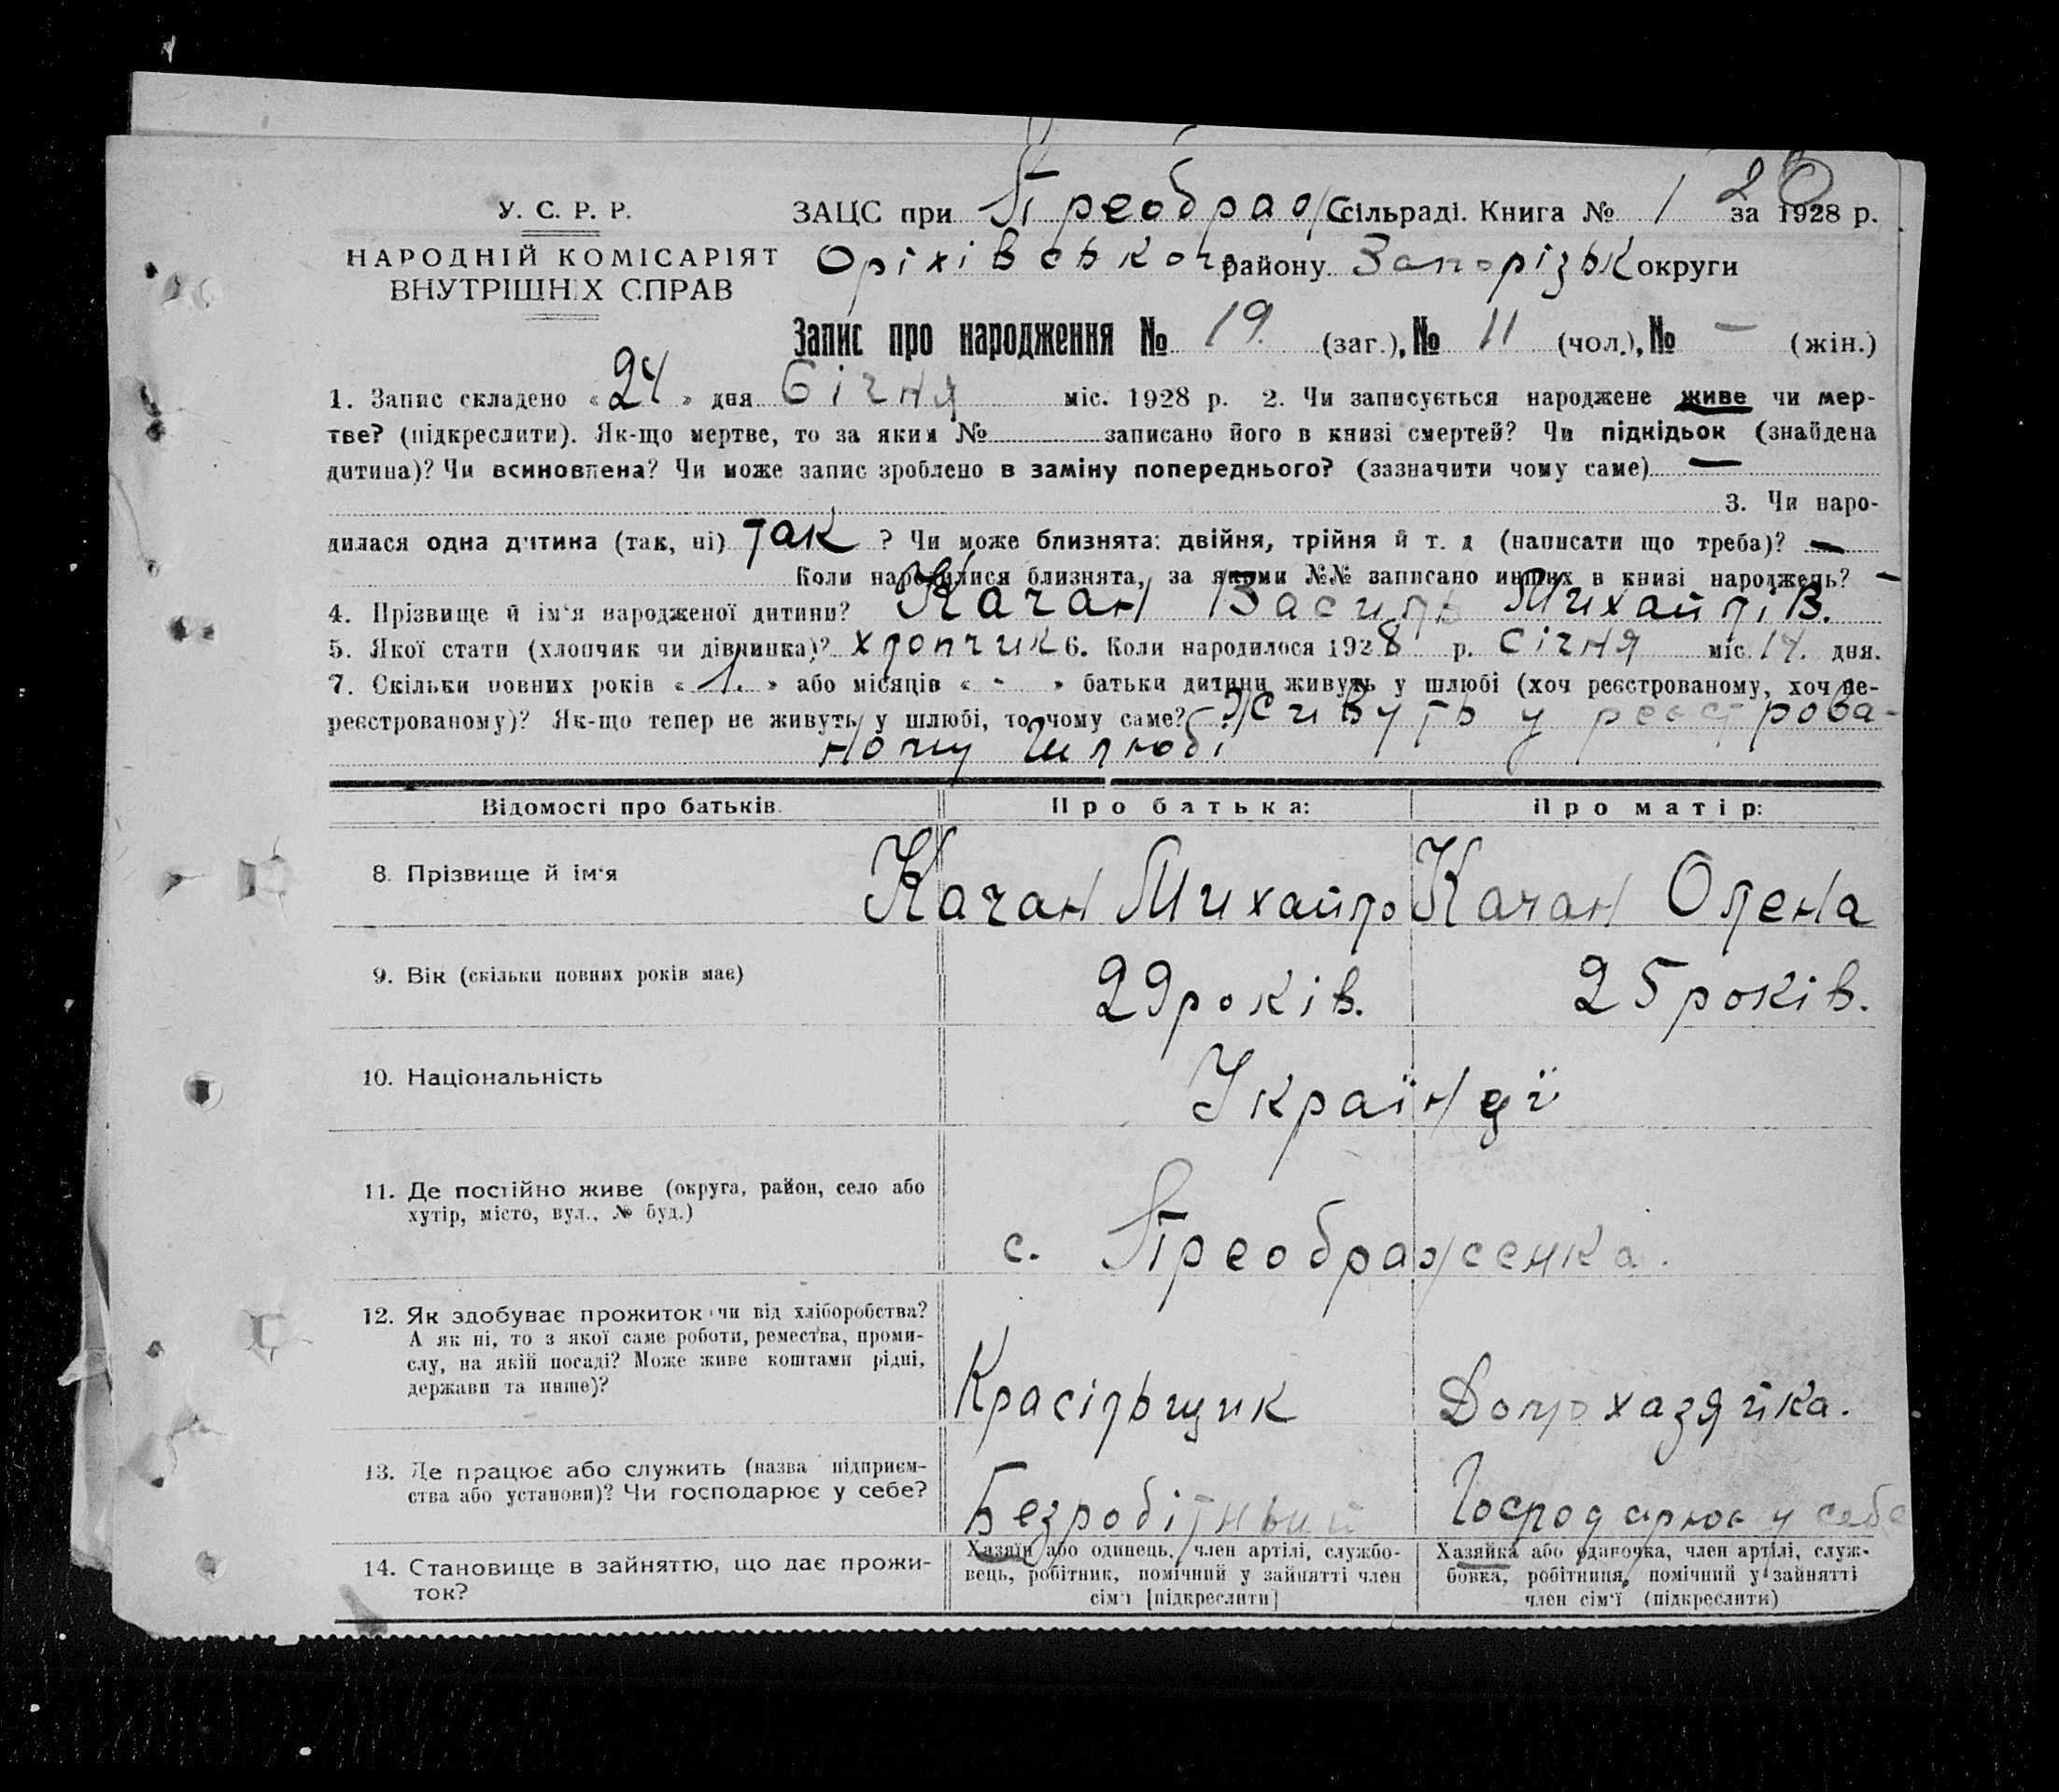 20
У. С. Р. Р.
НАРОДНІЙ КОМІСАРІЯТ
ВНУТРІШНІХ СПРАВ
ЗАЦС при Преображ сільраді. Книга № 1 за 1928 р.
Оріхівського району Запорізьк округи
Запис про народження № 19. (заг.), № 11 (чол.), № — (жін.)
1. Запис складено «24» дня Січня міс. 1928 р. 2. Чи записується народжене живе чи мер-
тве? (підкреслити). Як-що мертве, то за яким № записано його в книзі смертей? Чи підкідьок (знайдена
дитина)? Чи всиновлена? Чи може запис зроблено в заміну попереднього? (зазначити чому саме) —
3. Чи наро-
дилася одна дитина (так, ні) так ? Чи може близнята: двійня, трійня й т. д (написати що треба)? —
Коли народилися близнята, за якими №№ записано инших в книзі народжень? —
4. Прізвище й ім'я народженої дитини? Качан Василь Михайлів.
5. Якої стати (хлопчик чи дівчинка)? хлопчик 6. Коли народилося 1928 р. січня міс. 14. дня.
7. Скільки повних років « 1. » або місяців « - » батьки дитини живуть у шлюбі (хоч реєстрованому, хоч не-
реєстрованому)? Як-що тепер не живуть у шлюбі, то чому саме? Живуть у реєстрова-
ному шлюбі
Відомості про батьків. Про батька: Про матір:
8. Прізвище й ім'я Качан Михайло Качан Олена
9. Вік (скільки повних років має) 29 років. 25 років.
10. Національність Українці
11. Де постійно живе (округа, район, село або
хутір, місто, вул., № буд.) с. Преображенка.
12. Як здобуває прожиток чи від хліборобства?
А як ні, то з якої саме роботи, ремества, проми-
слу, на якій посаді? Може живе коштами рідні,
держави та инше)? Красільщик Домохазяйка.
13. Де працює або служить (назва підприєм-
ства або установи)? Чи господарює у себе? Безробітный Господарює у себе
14. Становище в зайняттю, що дає прожи-
ток?
Хазяїн або одинець, член артілі, службо-
вець, робітник, помічний у зайнятті член
сім'ї [підкреслити]
Хазяйка або одиночка, член артілі, служ-
бовка, робітниця, помічний у зайнятті
член сім'ї (підкреслити)